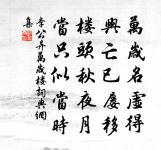 萬歲名虛得
興亡已屢移
樓頭秋夜月
當只似當時
李公升萬歲樓詞典網
集